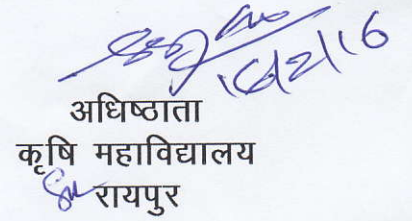 16/2/16
अधिष्ठाता
कृषि महाविद्यालय
रायपुर